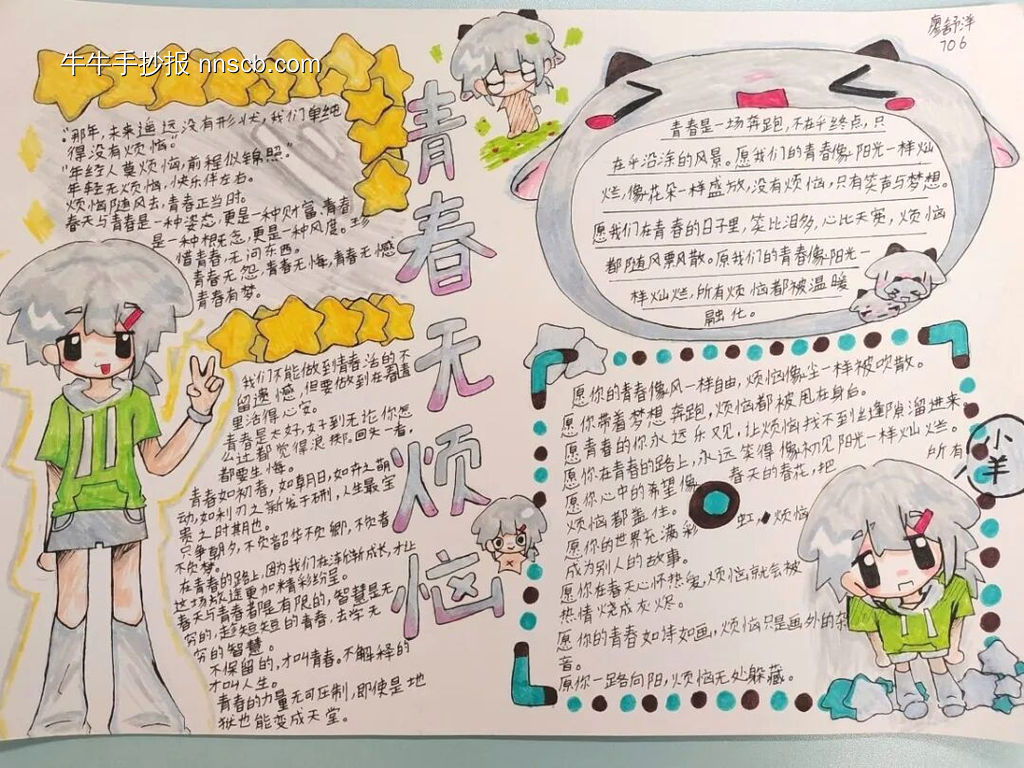 牛牛手抄报 nnscb.com
廖舒洋
706
青春无烦恼
"那年，未来遥远没有形状，我们单纯
得没有烦恼"
"年轻人莫烦恼，前程似锦照。"
年轻无烦恼，快乐伴左右。
烦恼随风去，青春正当时。
春天与青春是一种姿态，更是一种财富，青春
是一种概念，更是一种风度。珍
惜青春，无问东西。
青春无怨，青春无悔，青春无憾
青春有梦。
我们不能做到情春活的不
留遗憾，但要做到在青春
里活得心安。
青春是太好，好到无论你怎
么过都觉得浪掷，回头一看，
都要生悔。
青春如初春，如朝日，如卉之萌
动，如利刃之新发于硎，人生最宝
贵之时期也。
只争朝夕，不负韶华不负卿，不负春
不负梦。
在青春的路上，因为我们在渐渐成长，才让
这场旅途更加精彩纷呈。
春天与青春都是有限的，智慧是无
穷的，趁短短的青春，去学无
穷的智慧。
不保留的，才叫青春。不解释的
才叫人生。
青春的力量无可压制，即使是地
狱也能变成天堂。
青春是一场奔跑，不在乎终点，只
在乎沿途的风景。愿我们的青春像阳光一样灿
烂，像花朵一样盛放，没有烦恼，只有笑声与梦想。
愿我们在青春的日子里，笑比泪多，心比天宽，烦恼
都随风飘散。原我们的青春像阳光一
样灿烂，所有烦恼都被温暖
融化。
愿你的青春像风一样自由，烦恼像尘一样被吹散。
愿你带着梦想奔跑，烦恼都被甩在身后。
愿青春的你永远乐观，让烦恼找不到缝隙溜进来。
愿你在青春的路上，永远笑得像初见阳光一样灿烂。
愿你心中的希望像春天的春花，把所有
烦恼都盖住。
愿你的世界充满彩虹，烦恼
成为别人的故事。
愿你在春天心怀热爱，烦恼就会被
热情烧成灰烬。
愿你的青春如诗如画，烦恼只是画外的
音。
原你一路向阳，烦恼无处躲藏。
小羊